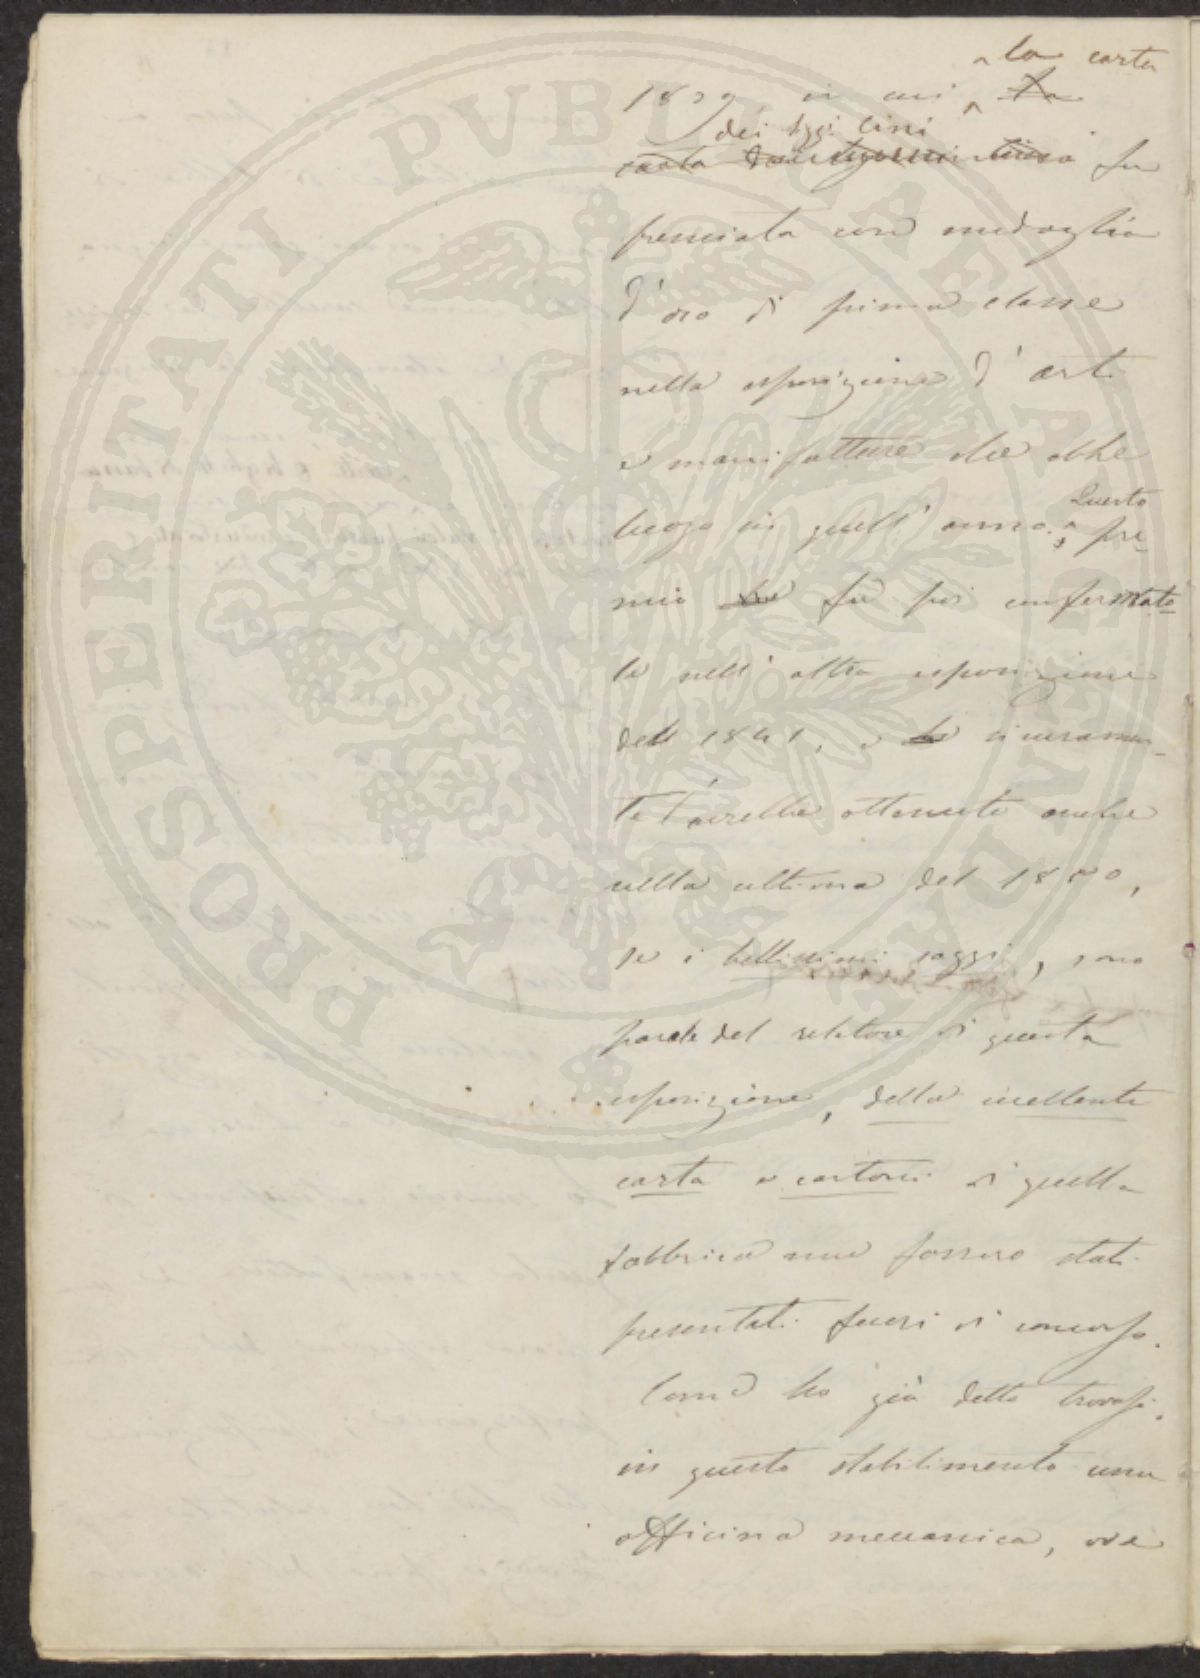 la carta
1839, in cui ~~la~~
dei Sigg. Cini
~~carta dei~~ fu
premiata con medaglia
d'oro di prima classe
nella esposizione d'arti
e manifatture che ebbe
Questo
luogo in quell'anno; pre-
mio ~~che~~ fu poi confermato
le nell'altra esposizione
dell 1841, e ~~che~~ sicuramen-
te l'avrebbe ottenuto anche
nella ultima del 1850,
se i bellissimi saggi, sono
parole del relatore di questa
esposizione, della eccellente
carta e cartoni di quella
fabbrica non fossero stati
presentati fuori di concorso.
Come ho già detto trovasi
in questo stabilimento una
officina meccanica, ove
PROSPERITATI PVBLICAE